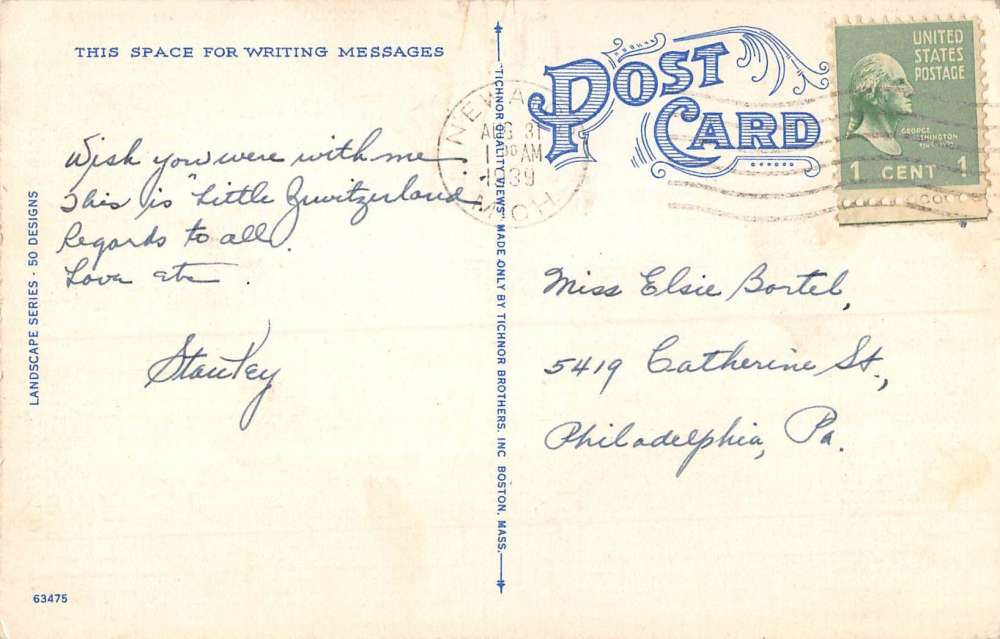 THIS SPACE FOR WRITING MESSAGES
Wish you were with me
This is "Little Zwitzerland
Regards to all.
Love etc
Stanley
LANDSCAPE SERIES - 50 DESIGNS
63475
"TICHNOR QUALITY VIEWS" MADE ONLY BY TICHNOR BROTHERS, INC BOSTON, MASS.
POST
CARD
AUG 31
AM
1939
MICH.
UNITED
STATES
POSTAGE
GEORGE
WASHINGTON
1 CENT 1
Miss Elsie Bortel,
5419 Catherine St.,
Philadelphia, Pa.